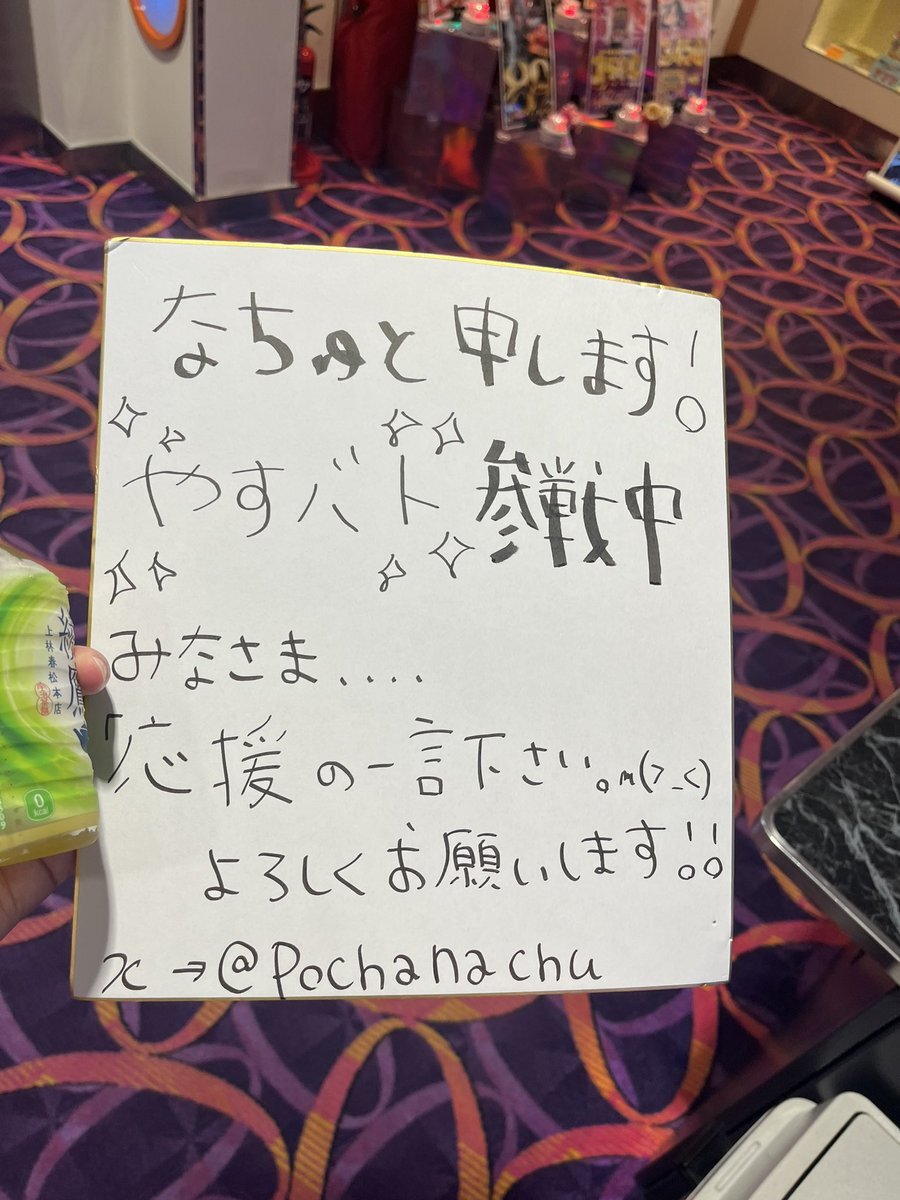 なちゅと申します!
やすバト参戦中
みなさま....
応援の一言下さい。m(>_<)
よろしくお願いします!!
X→@Pochanachu
綾鷹
上林春松本店
0
kcal